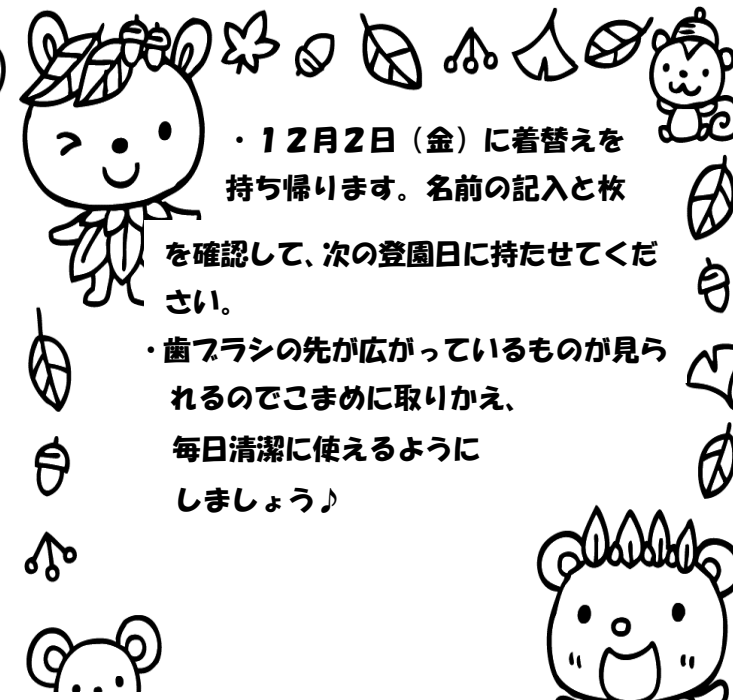 ・１２月２日（金）に着替えを
持ち帰ります。名前の記入と枚
を確認して、次の登園日に持たせてくだ
さい。
・歯ブラシの先が広がっているものが見ら
れるのでこまめに取りかえ、
毎日清潔に使えるように
しましょう♪